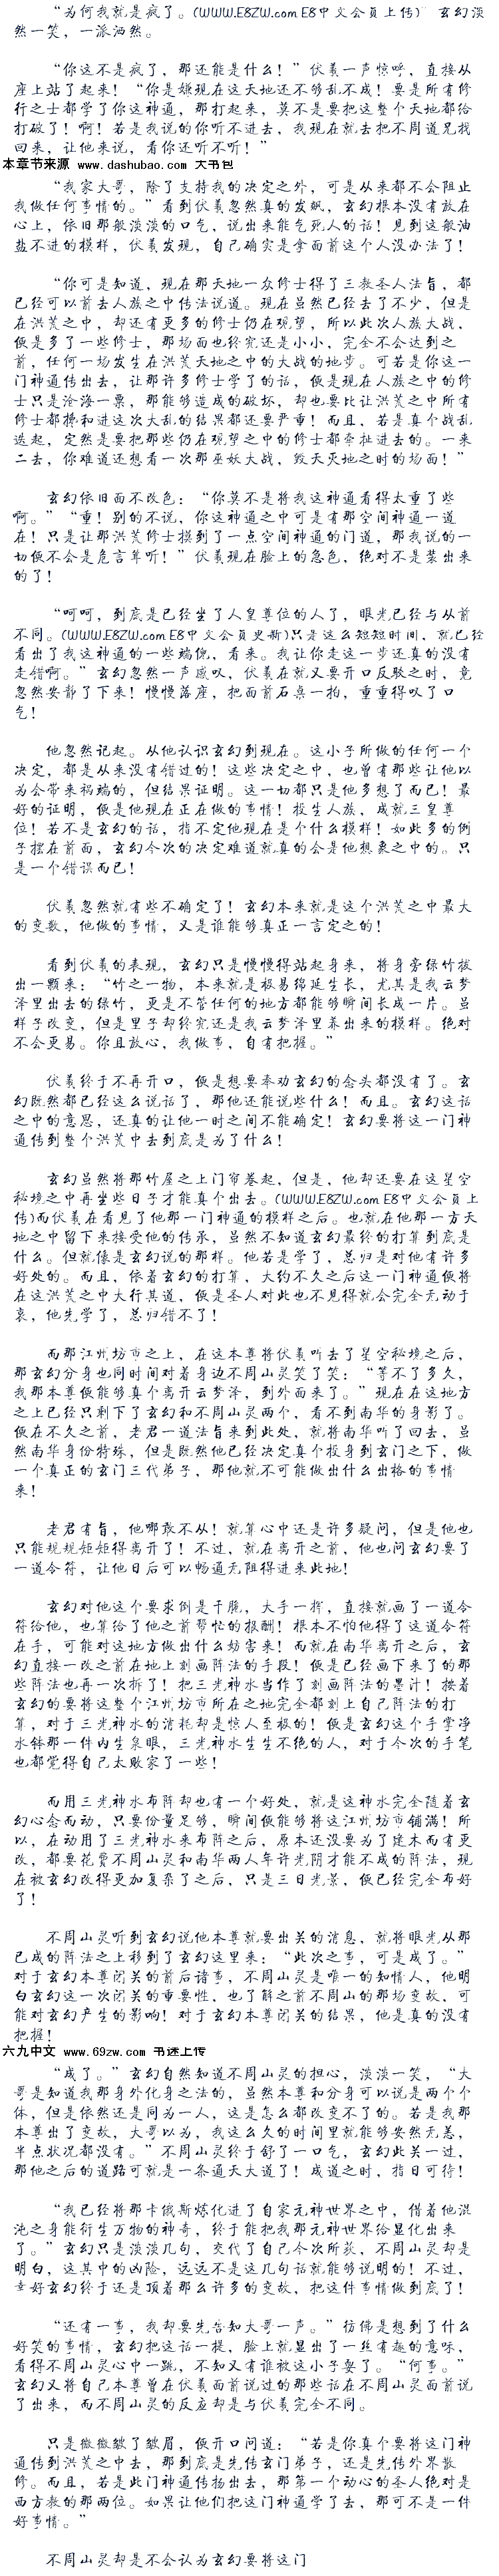 “为何我就是疯了。(WWW.E8ZW.com E8中文会员上传)” 玄幻淡
然一笑，一派洒然。
“你这不是疯了，那还能是什么！”伏羲一声惊呼，直接从
座上站了起来！“你是嫌现在这天地还不够乱不成！要是所有修
行之士都学了你这神通，那打起来，莫不是要把这整个天地都给
打破了！啊！若是我说的你听不进去，我现在就去把不周道兄找
回来，让他来说，看你还听不听！”
本章节来源 www.dashubao.com 大书包
“我家大哥，除了支持我的决定之外，可是从来都不会阻止
我做任何事情的。”看到伏羲忽然真的发飙，玄幻根本没有放在
心上，依旧那般淡淡的口气，说出来能气死人的话！见到这般油
盐不进的模样，伏羲发现，自己确实是拿面前这个人没办法了！
“你可是知道，现在那天地一众修士得了三教圣人法旨，都
已经可以前去人族之中传法说道。现在虽然已经去了不少，但是
在洪荒之中，却还有更多的修士仍在观望，所以此次人族大战，
便是多了一些修士，那场面也终究还是小小，完全不会达到之
前，任何一场发生在洪荒天地之中的大战的地步。可若是你这一
门神通传出去，让那许多修士学了的话，便是现在人族之中的修
士只是沧海一粟，那能够造成的破坏，却也要比让洪荒之中所有
修士都掺和进这次大乱的结果都还要严重！而且，若是真个战乱
迭起，定然是要把那些仍在观望之中的修士都牵扯进去的。一来
二去，你难道还想看一次那巫妖大战，毁天灭地之时的场面！”
玄幻依旧面不改色：“你莫不是将我这神通看得太重了些
啊。”“重！别的不说，你这神通之中可是有那空间神通一道
在！只是让那洪荒修士摸到了一点空间神通的门道，那我说的一
切便不会是危言耸听！”伏羲现在脸上的急色，绝对不是装出来
的了！
“呵呵，到底是已经坐了人皇尊位的人了，眼光已经与从前
不同。(WWW.E8ZW.com E8中文会员更新)只是这么短短时间，就已经
看出了我这神通的一些端倪，看来。我让你走这一步还真的没有
走错啊。”玄幻忽然一声感叹，伏羲在就又要开口反驳之时，竟
忽然安静了下来！慢慢落座，把面前石桌一拍，重重得叹了口
气！
他忽然记起。从他认识玄幻到现在。这小子所做的任何一个
决定，都是从来没有错过的！这些决定之中，也曾有那些让他以
为会带来祸端的，但结果证明。这一切都只是他多想了而已！最
好的证明，便是他现在正在做的事情！投生人族，成就三皇尊
位！若不是玄幻的话，指不定他现在是个什么模样！如此多的例
子摆在前面，玄幻今次的决定难道就真的会是他想象之中的。只
是一个错误而已！
伏羲忽然就有些不确定了！玄幻本来就是这个洪荒之中最大
的变数，他做的事情，又是谁能够真正一言定之的！
看到伏羲的表现，玄幻只是慢慢得站起身来，将身旁绿竹拔
出一颗来：“竹之一物，本来就是极易绵延生长，尤其是我云梦
泽里出去的绿竹，更是不管任何的地方都能够瞬间长成一片。虽
样子改变，但是里子却终究还是我云梦泽里养出来的模样。绝对
不会更易。你且放心，我做事，自有把握。”
伏羲终于不再开口，便是想要奉劝玄幻的念头都没有了。玄
幻既然都已经这么说话了，那他还能说些什么！而且。玄幻这话
之中的意思，还真的让他一时之间不能确定！玄幻要将这一门神
通传到整个洪荒中去到底是为了什么！
玄幻虽然将那竹屋之上门帘卷起，但是，他却还要在这星空
秘境之中再坐些日子才能真个出去。(WWW.E8ZW.com E8中文会员上
传)而伏羲在看见了他那一门神通的模样之后。也就在他那一方天
地之中留下来接受他的传承，虽然不知道玄幻最终的打算到底是
什么。但就像是玄幻说的那样。他若是学了，总归是对他有许多
好处的。而且，依着玄幻的打算，大约不久之后这一门神通便将
在这洪荒之中大行其道，便是圣人对此也不见得就会完全无动于
衷，他先学了，总归错不了！
而那江州坊市之上，在这本尊将伏羲听去了星空秘境之后，
那玄幻分身也同时间对着身边不周山灵笑了笑：“等不了多久，
我那本尊便能够真个离开云梦泽，到外面来了。”现在在这地方
之上已经只剩下了玄幻和不周山灵两个，看不到南华的身影了。
便在不久之前，老君一道法旨来到此处，就将南华听了回去，虽
然南华身份特殊，但是既然他已经决定真个投身到玄门之下，做
一个真正的玄门三代弟子，那他就不可能做出什么出格的事情
来！
老君有旨，他哪敢不从！就算心中还是许多疑问，但是他也
只能规规矩矩得离开了！不过，就在离开之前，他也问玄幻要了
一道令符，让他日后可以畅通无阻得进来此地！
玄幻对他这个要求倒是干脆，大手一挥，直接就画了一道令
符给他，也算给了他之前帮忙的报酬！根本不怕他得了这道令符
在手，可能对这地方做出什么妨害来！而就在南华离开之后，玄
幻直接一改之前在地上刻画阵法的手段！便是已经画下来了的那
些阵法也再一次拆了！把三光神水当作了刻画阵法的墨汁！按着
玄幻的要将这整个江州坊市所在之地完全都刻上自己阵法的打
算，对于三光神水的消耗却是惊人至极的！便是玄幻这个手掌净
水钵那一件内生泉眼，三光神水生生不绝的人，对于今次的手笔
也都觉得自己太败家了一些！
而用三光神水布阵却也有一个好处，就是这神水完全随着玄
幻心念而动，只要份量足够，瞬间便能够将这江州坊市铺满！所
以，在动用了三光神水来布阵之后，原本还没要为了建木而有更
改，都要花费不周山灵和南华两人年许光阴才能不成的阵法，现
在被玄幻改得更加复杂了之后，只是三日光景，便已经完全布好
了！
不周山灵听到玄幻说他本尊就要出关的消息，就将眼光从那
已成的阵法之上移到了玄幻这里来：“此次之事，可是成了。”
对于玄幻本尊闭关的前后诸事，不周山灵是唯一的知情人，他明
白玄幻这一次闭关的重要性，也了解之前不周山的那场变故，可
能对玄幻产生的影响！对于玄幻本尊闭关的结果，他是真的没有
把握！
六九中文 www.69zw.com 书迷上传
“成了。”玄幻自然知道不周山灵的担心，淡淡一笑，“大
哥是知道我那身外化身之法的，虽然本尊和分身可以说是两个个
体，但是依然还是同为一人，这是怎么都改变不了的。若是我那
本尊出了变故，大哥以为，我这么久的时间里就能够安然无恙，
半点状况都没有。”不周山灵终于舒了一口气，玄幻此关一过，
那他之后的道路可就是一条通天大道了！成道之时，指日可待！
“我已经将那卡俄斯炼化进了自家元神世界之中，借着他混
沌之身能衍生万物的神奇，终于能把我那元神世界给显化出来
了。”玄幻只是淡淡几句，交代了自己今次所获，不周山灵却是
明白，这其中的凶险，远远不是这几句话就能够说明的！不过，
幸好玄幻终于还是顶着那么许多的变故，把这件事情做到底了！
“还有一事，我却要先告知大哥一声。”彷佛是想到了什么
好笑的事情，玄幻把这话一提，脸上就显出了一丝有趣的意味，
看得不周山灵心中一跳，不知又有谁被这小子耍了。“何事。”
玄幻又将自己本尊曾在伏羲面前说过的那些话在不周山灵面前说
了出来，而不周山灵的反应却是与伏羲完全不同。
只是微微皱了皱眉，便开口问道：“若是你真个要将这门神
通传到洪荒之中去，那到底是先传玄门弟子，还是先传外界散
修。而且，若是此门神通传扬出去，那第一个动心的圣人绝对是
西方教的那两位。如果让他们把这门神通学了去，那可不是一件
好事情。”
不周山灵却是不会认为玄幻要将这门